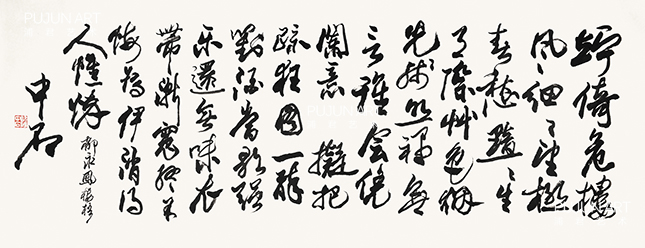 竚倚危樓
風細細望極
春愁黯黯生
天際草色烟
光殘照裡無
言誰會凭
闌意 擬把
疏狂圖一醉
對酒當歌強
樂還無味衣
帶漸寬終不
悔為伊消得
人憔悴 柳永鳳棲梧
中石
PUJUN ART